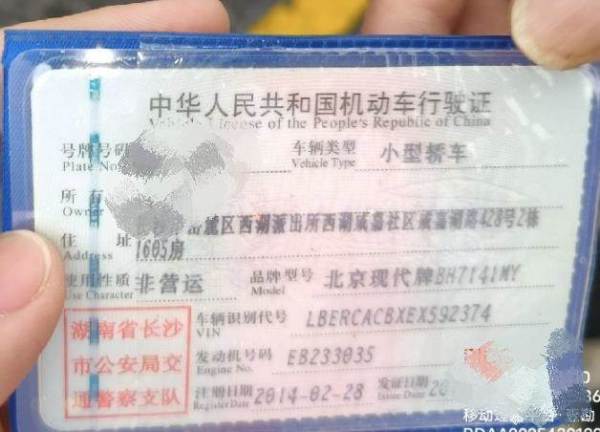 中华人民共和国机动车行驶证
Vehicle License of the People's Republic of China
号牌号码
Plate No.
车辆类型 小型轿车
Vehicle Type
所有
Owner
区西湖派出所西湖咸嘉社区咸嘉湖路428号2栋
住址 1605房
Address
使用性质 非营运
Use Character
品牌型号 北京现代牌BH7141MY
Model
湖南省长沙
市公安局交
通警察支队
车辆识别代号 LBERCACBXEX592374
VIN
发动机号码 EB233035
Engine No.
注册日期 2014-02-28
Register Date
发证日期 20
Issue Date
移动